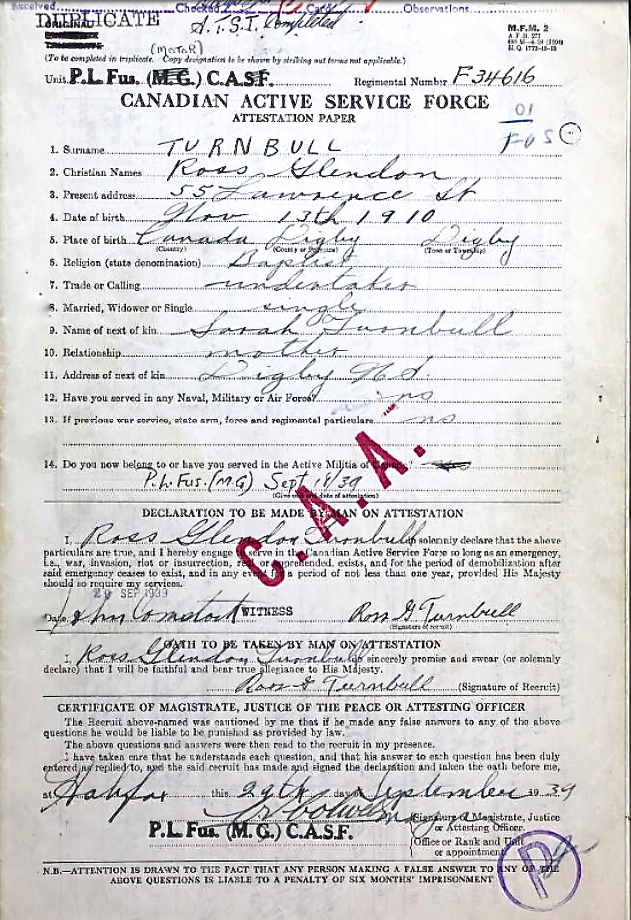 Received Checked Card Observations.
DUPLICATE
A.T.S.I. Completed
ORIGINAL
M.F.M. 2
(MOTOR)
(To be completed in triplicate. Copy designation to be shown by striking out terms not applicable.)
Unit P.L Fus. (M.G.) C.A.S.F. Regimental Number F34616
CANADIAN ACTIVE SERVICE FORCE
ATTESTATION PAPER
01
FUS
1. Surname TURNBULL
2. Christian Names Ross Glendon
3. Present address 55 Lawrence St
4. Date of birth Nov 13th 1910
5. Place of birth Canada Digby Digby
(Country) (County or Province) (Town or Township)
6. Religion (state denomination) Baptist
7. Trade or Calling undertaker
8. Married, Widower or Single single
9. Name of next of kin Sarah Turnbull
10. Relationship mother
11. Address of next of kin Digby N.S.
12. Have you served in any Naval, Military or Air Force? no
13. If previous war service, state arm, force and regimental particulars no
14. Do you now belong to or have you served in the Active Militia of Canada?
P.L. Fus. (MG) Sept 14/39
(Give unit and date of attestation)
C.A.A.
DECLARATION TO BE MADE BY MAN ON ATTESTATION
I, Ross Glendon Turnbull do solemnly declare that the above
particulars are true, and I hereby engage to serve in the Canadian Active Service Force so long as an emergency,
i.e., war, invasion, riot or insurrection, real or apprehended, exists, and for the period of demobilization after
said emergency ceases to exist, and in any event for a period of not less than one year, provided His Majesty
should so require my services.
29 SEP 1939
Date John Comstock WITNESS Ross G Turnbull
(Signature of recruit)
OATH TO BE TAKEN BY MAN ON ATTESTATION
I, Ross Glendon Turnbull do sincerely promise and swear (or solemnly
declare) that I will be faithful and bear true allegiance to His Majesty.
Ross G Turnbull (Signature of Recruit)
CERTIFICATE OF MAGISTRATE, JUSTICE OF THE PEACE OR ATTESTING OFFICER
The Recruit above-named was cautioned by me that if he made any false answers to any of the above
questions he would be liable to be punished as provided by law.
The above questions and answers were then read to the recruit in my presence.
I have taken care that he understands each question, and that his answer to each question has been duly
entered as replied to, and the said recruit has made and signed the declaration and taken the oath before me,
at Halifax this 29th day of September 1939
(Signature of Magistrate, Justice
or Attesting Officer.
P.L. Fus. (M.G.) C.A.S.F.
(Office or Rank and Unit
or appointment.
P
N.B.—ATTENTION IS DRAWN TO THE FACT THAT ANY PERSON MAKING A FALSE ANSWER TO ANY OF THE
ABOVE QUESTIONS IS LIABLE TO A PENALTY OF SIX MONTHS' IMPRISONMENT